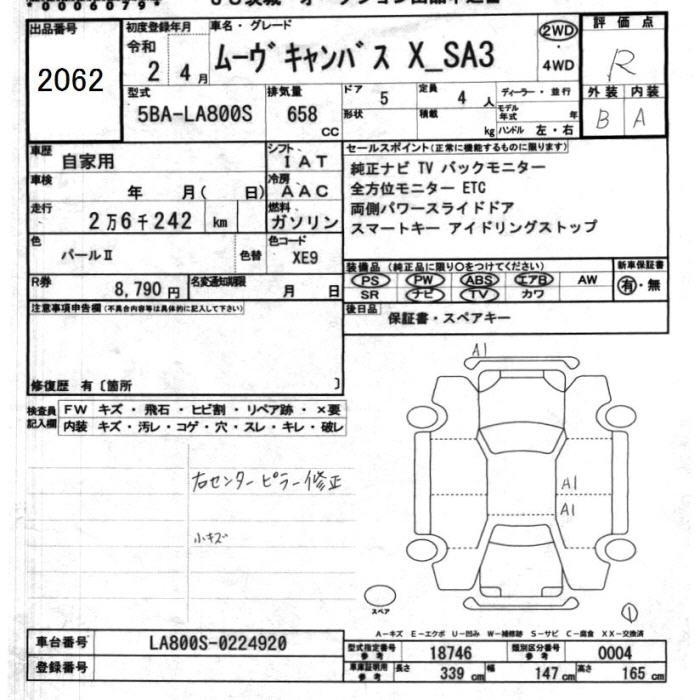 出品番号
2062
初度登録年月
令和
2 4月
車名・グレード
ムーヴキャンバス X_SA3
2WD
・
4WD
評価点
R
外装 内装
B A
型式
5BA-LA800S
排気量
658 CC
ドア 5
定員 4 人
形状
積載 kg
ディーラー・並行
モデル年式 年
ハンドル 左・右
車歴
自家用
シフト
IAT
車検
年 月( 日)
冷房
AAC
走行
2万6千242 km
燃料
ガソリン
色
パールⅡ
色替
色コード
XE9
R券
8,790円
名変通知期限
月 日
セールスポイント(正常に機能するものに限ります)
純正ナビ TV バックモニター
全方位モニター ETC
両側パワースライドドア
スマートキー アイドリングストップ
装備品 (純正品に限り○をつけてください)
PS PW ABS エアB AW
SR ナビ TV カワ
新車保証書
有・無
後日品
保証書・スペアキー
注意事項申告欄(不具合内容等は具体的に記入して下さい)
修復歴 有〔箇所 〕
検査員記入欄
FW キズ・飛石・ヒビ割・リペア跡・×要
内装 キズ・汚レ・コゲ・穴・スレ・キレ・破レ
右センターピラー修正
小キズ
A1
A1
A1
スペア
1
A-キズ E-エクボ U-凹み W-補修跡 S-サビ C-腐食 XX-交換済
車台番号
LA800S-0224920
登録番号
型式指定番号 参考
18746
類別区分番号 参考
0004
車庫証明用 参考
長さ 339 cm
幅 147 cm
高さ 165 cm